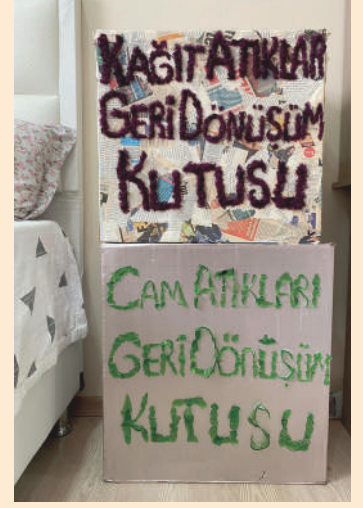 KAĞIT ATIKLAR
GERİ DÖNÜŞÜM
KUTUSU
CAM ATIKLARI
GERİ DÖNÜŞÜM
KUTUSU